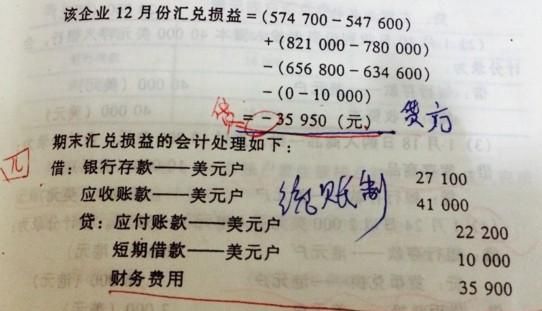 该企业12月份汇兑损益=(574 700-547 600)
+(821 000-780 000)
-(656 800-634 600)
-(0-10 000)
=-35 950(元) 贷方
期末汇兑损益的会计处理如下：
借：银行存款——美元户 27 100
应收账款——美元户 41 000
贷：应付账款——美元户 22 200
短期借款——美元户 10 000
财务费用 35 900